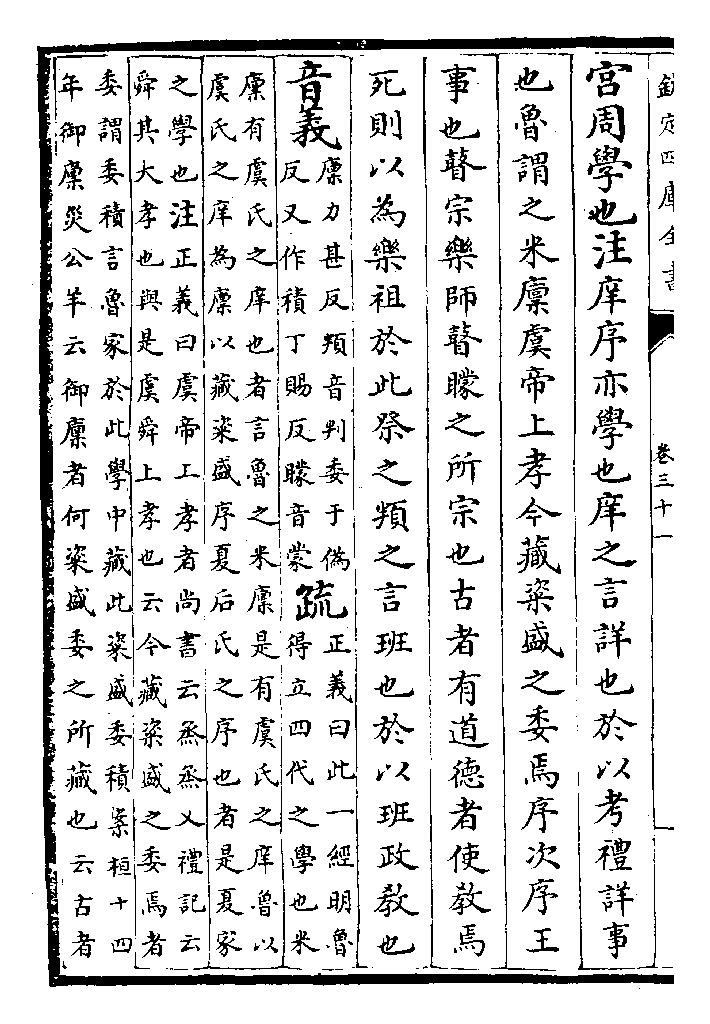 欽定四庫全書 卷三十一
宫周學也注庠序亦學也庠之言詳也於以考禮詳事
也魯謂之米廩虞帝上孝今藏粢盛之委焉序次序王
事也瞽宗樂師瞽矇之所宗也古者有道德者使敎焉
死則以為樂祖於此祭之頖之言班也於以班政敎也
音義
廩力甚反頖音判委于偽
反又作積丁賜反矇音蒙
疏
正義曰此一經明魯
得立四代之學也米
廩有虞氏之庠也者言魯之米廩是有虞氏之庠魯以
虞氏之庠為廩以藏粢盛序夏后氏之序也者是夏家
之學也注正義曰虞帝上孝者尚書云烝烝乂禮記云
舜其大孝也與是虞舜上孝也云今藏粢盛之委焉者
委謂委積言魯家於此學中藏此粢盛委積案桓十四
年御廩災公羊云御廩者何粢盛委之所藏也云古者